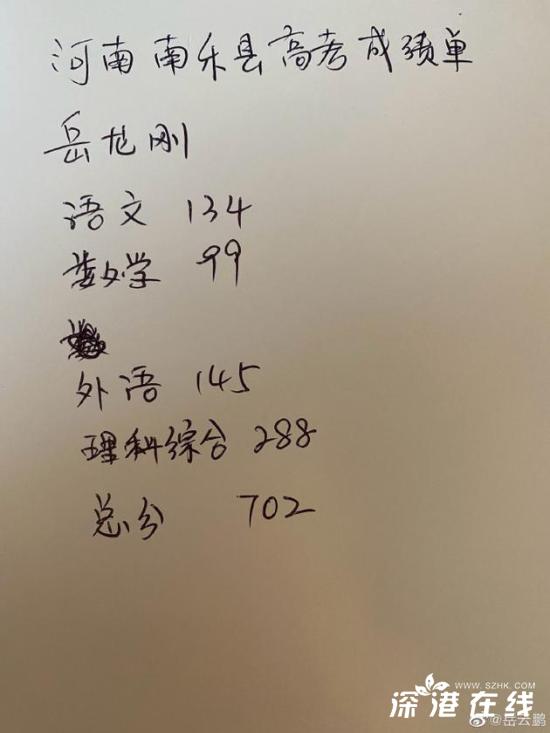 河南南乐县高考成绩单
岳龙刚
语文 134
数学 99
外语 145
理科综合 288
总分 702
WWW.SZHK.COM
深港在线
@岳云鹏